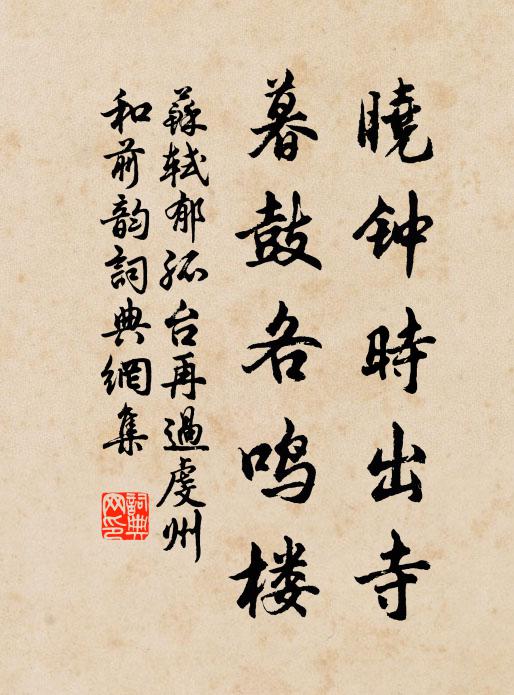 曉钟時出寺
暮鼓各鸣楼
蘇轼郁孤台再過虔州
和前韵詞典網集
詞典
网印